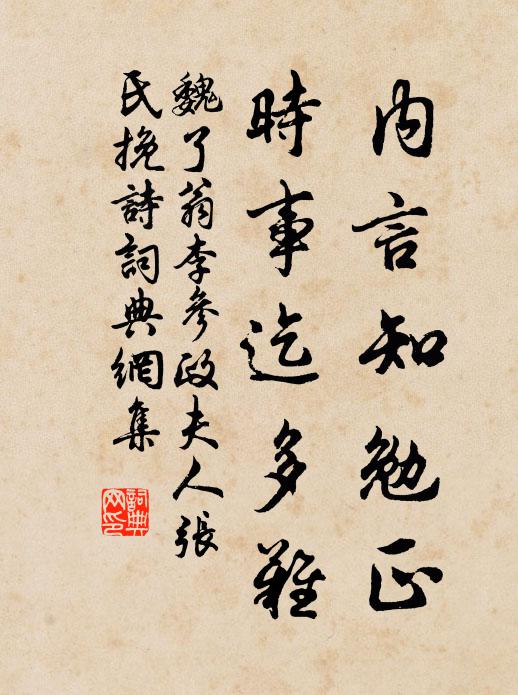 内言知勉正
時事迄多難
魏了翁李參政夫人張
民挽詩詞典網集
詞典网印